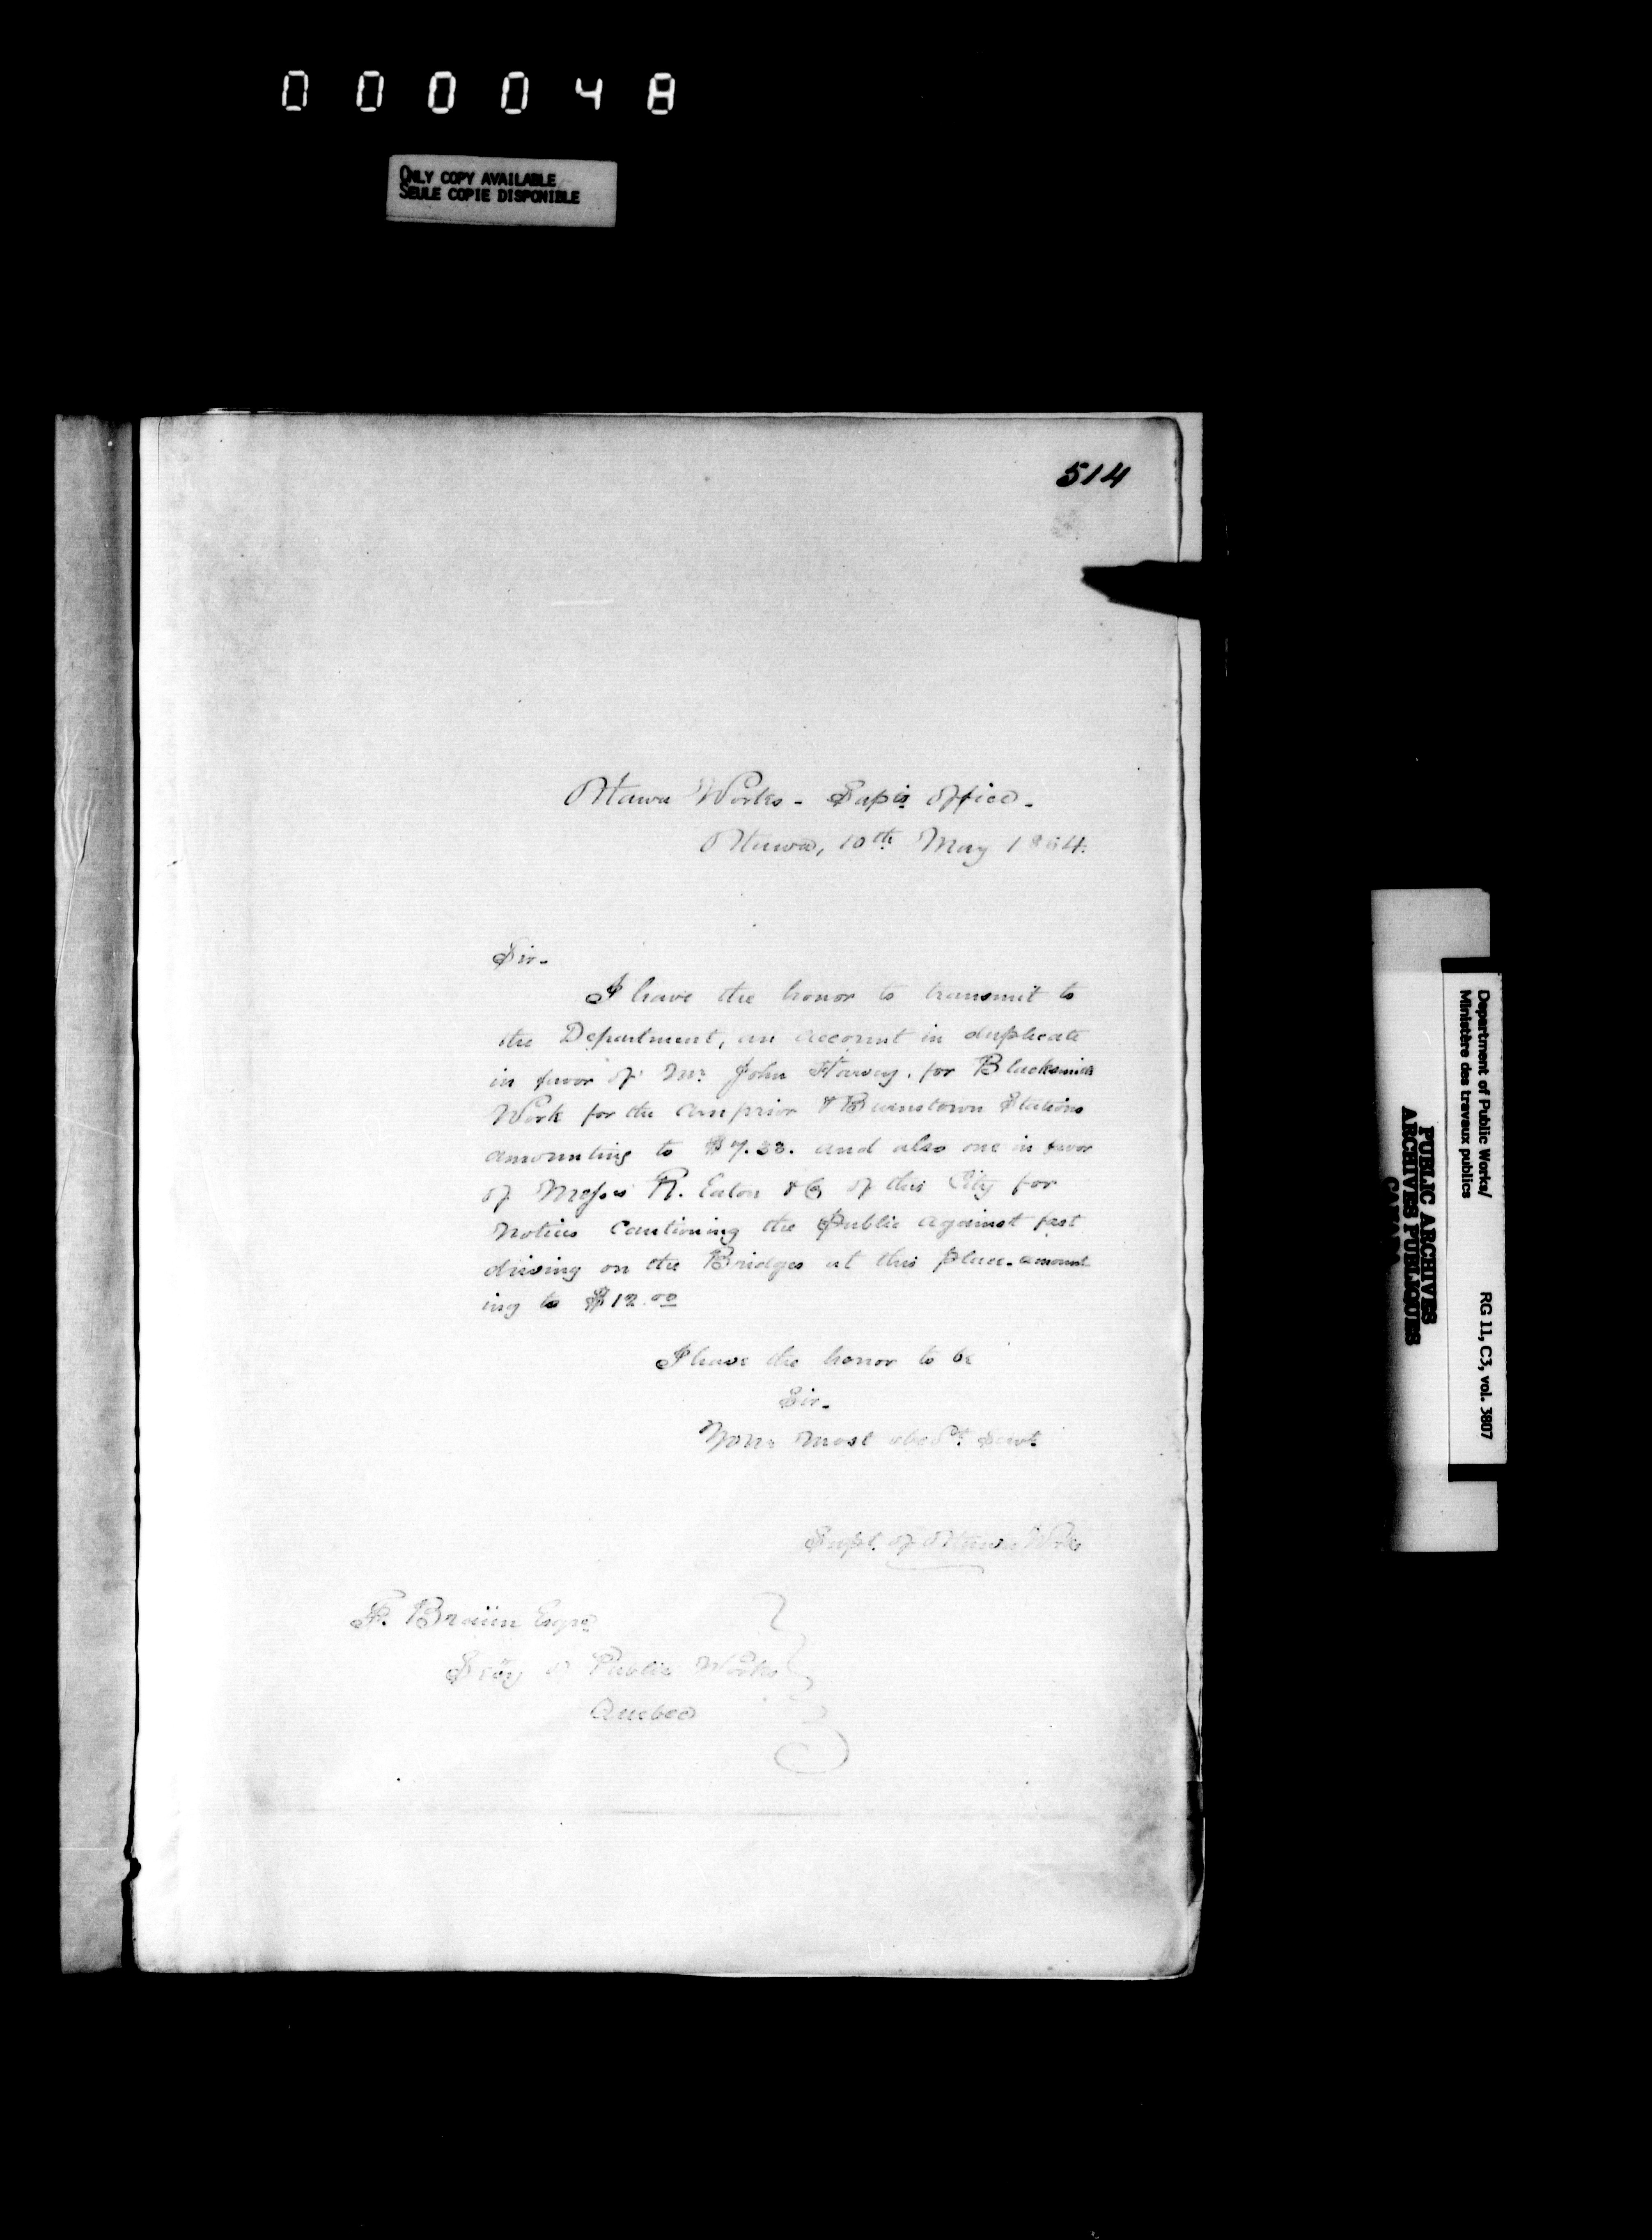 000048
ONLY COPY AVAILABLE
SEULE COPIE DISPONIBLE
514
Ottawa Works - Supts Office -
Ottawa, 10th May 1864.
Sir -
I have the honor to transmit to
the Department, an account in duplicate
in favor of Mr. John Harvey, for Blacksmith
Work for the Arnprior & Burnstown Stations
amounting to $7.33. and also one in favor
of Messrs R. Eaton & Co of this City for
Notices Cautioning the Public against fast
driving on the Bridges at this place - amount
ing to $12.00
I have the honor to be
Sir -
Your most obedt. Servt.
Supt. of Ottawa Works
F. Braün Esqre
Secty of Public Works
Quebec
Department of Public Works/
Ministère des travaux publics
RG 11, C3, vol. 3807
PUBLIC ARCHIVES
ARCHIVES PUBLIQUES